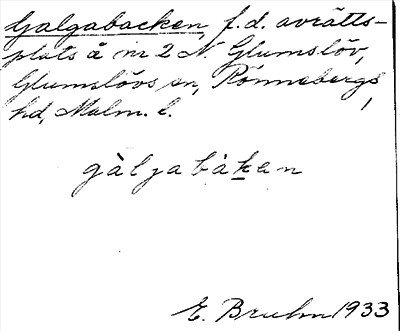 Galgabacken, f.d. avrätts-
plats å nr 2 N. Glumslöv,
Glumslövs sn, Rönnebergs
hd, Malm. l.
gàlgabàkan
E. Bruhn 1933